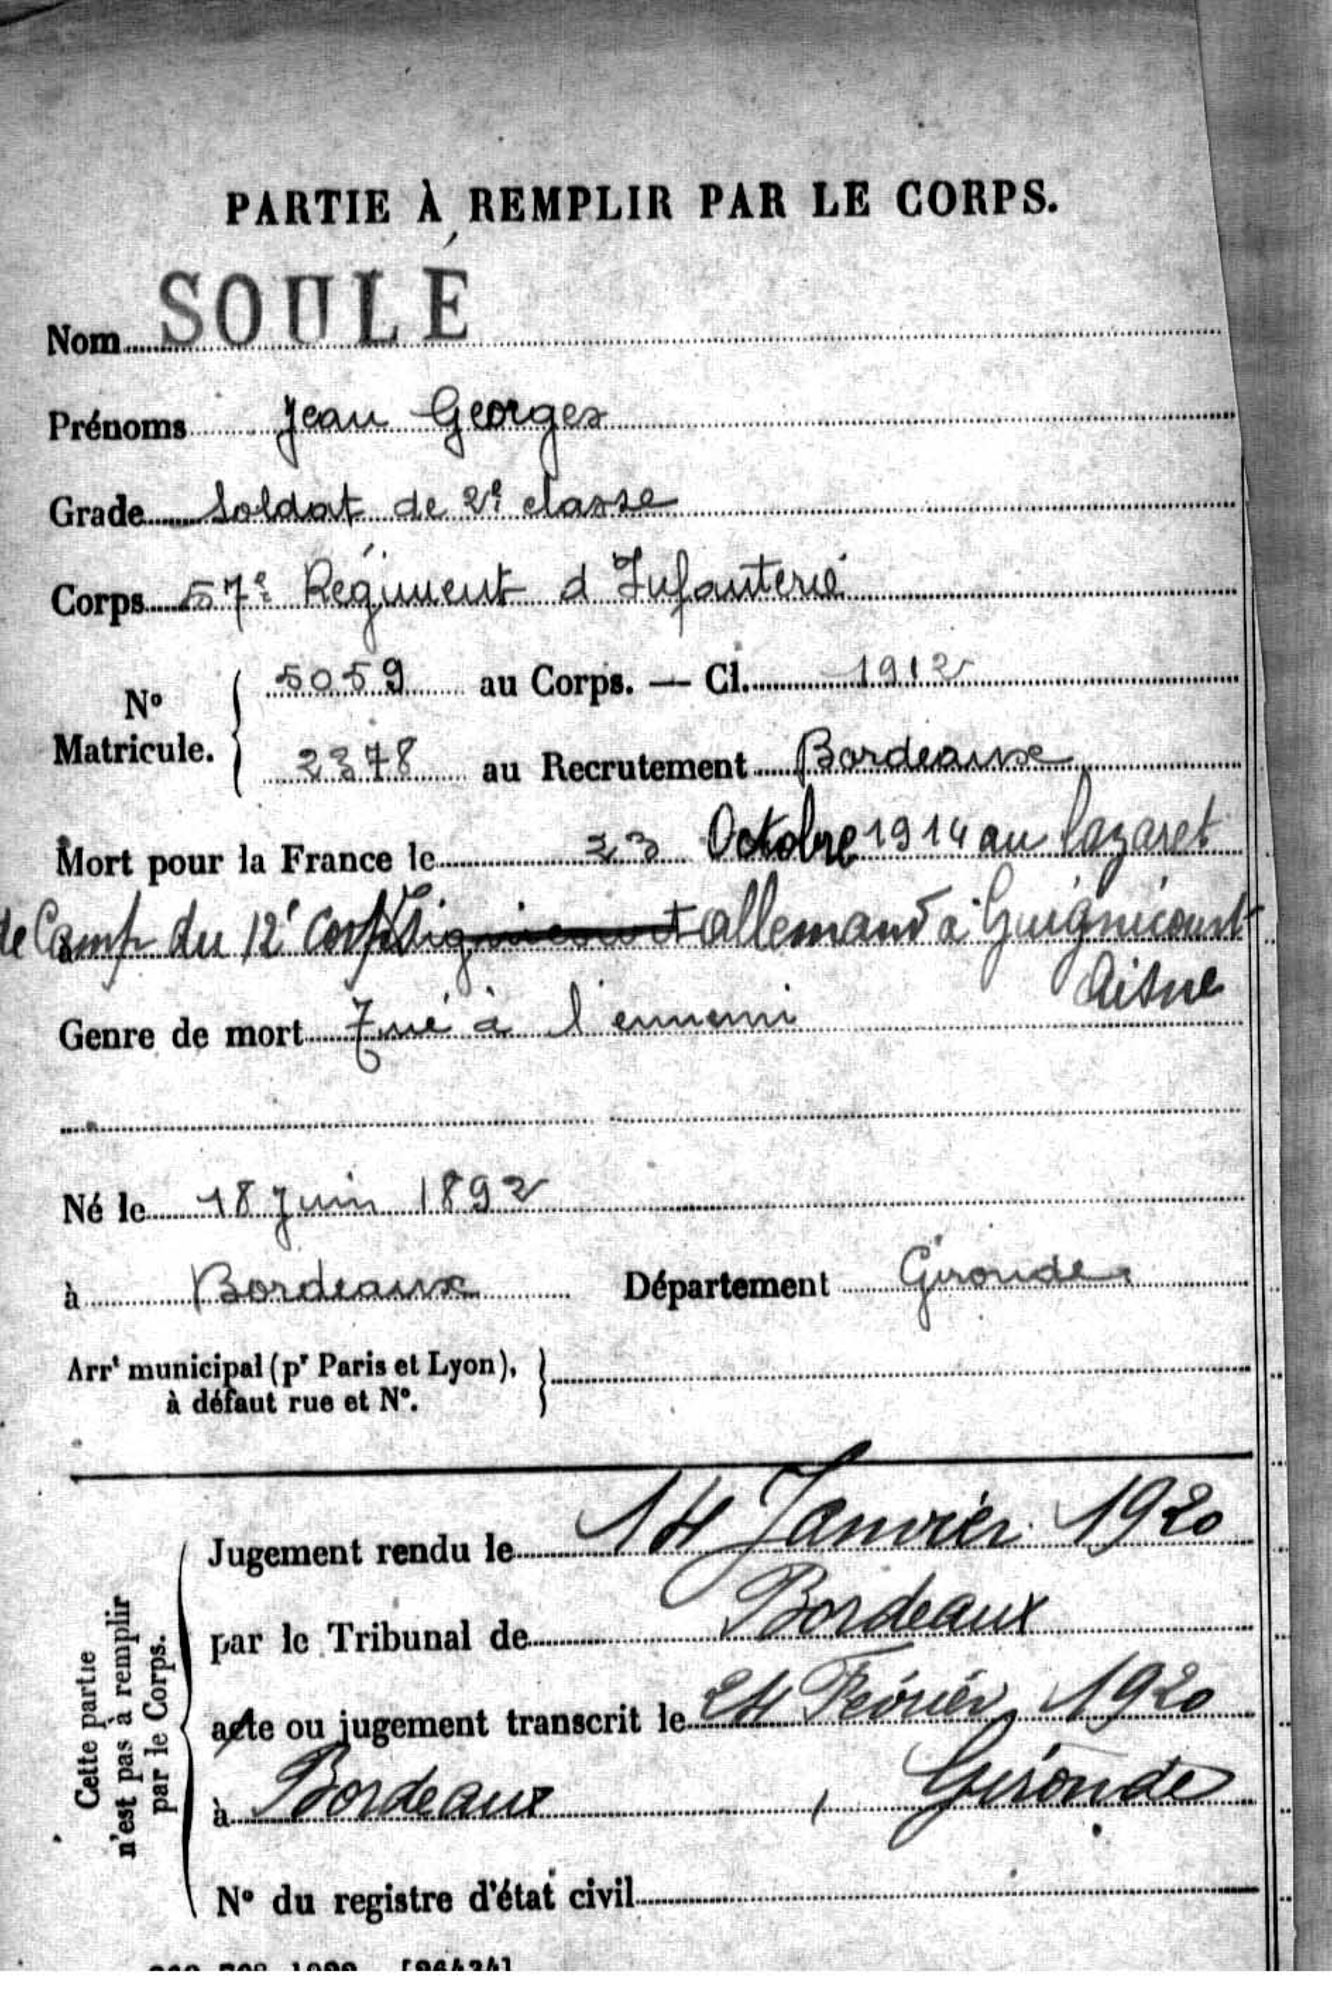 PARTIE À REMPLIR PAR LE CORPS.
Nom SOULÉ
Prénoms Jean Georges
Grade Soldat de 2e classe
Corps 57e Régiment d Infanterie
No Matricule. { 5059 au Corps. — Cl. 1912
2378 au Recrutement Bordeaux
Mort pour la France le 23 Octobre 1914 au lazaret
de Camp du 12e Corps allemand à Guignicourt
Aisne
Genre de mort Tué à l'ennemi
Né le 18 Juin 1892
à Bordeaux Département Gironde
Arrt municipal (pr Paris et Lyon),
à défaut rue et No.
Cette partie
n'est pas à remplir
par le Corps.
Jugement rendu le 14 Janvier 1920
par le Tribunal de Bordeaux
acte ou jugement transcrit le 24 Février 1920
à Bordeaux, Gironde
No du registre d'état civil